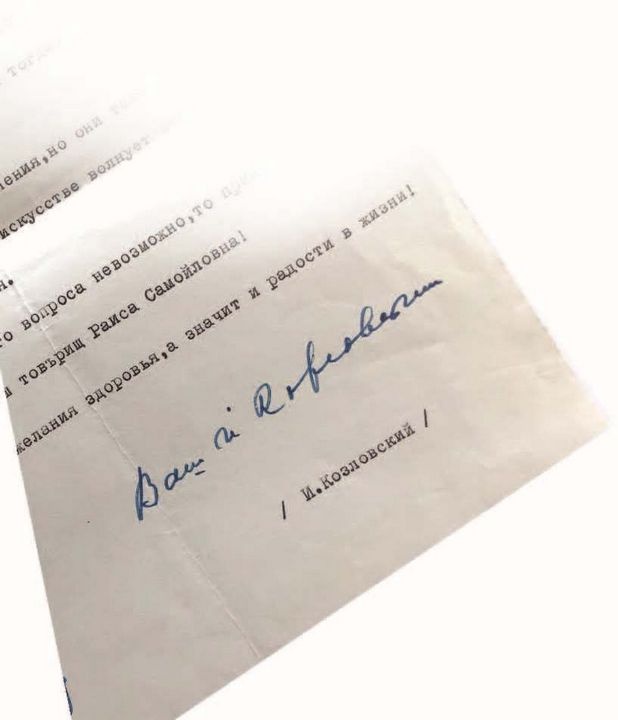 тогда
ения,но они
искусстве волнует
н.
о вопроса невозможно,то
и товърищ Раиса Самойловна!
желания здоровья,а значит и радости в жизни!
Ваш И Козловский
/ И.Козловский /